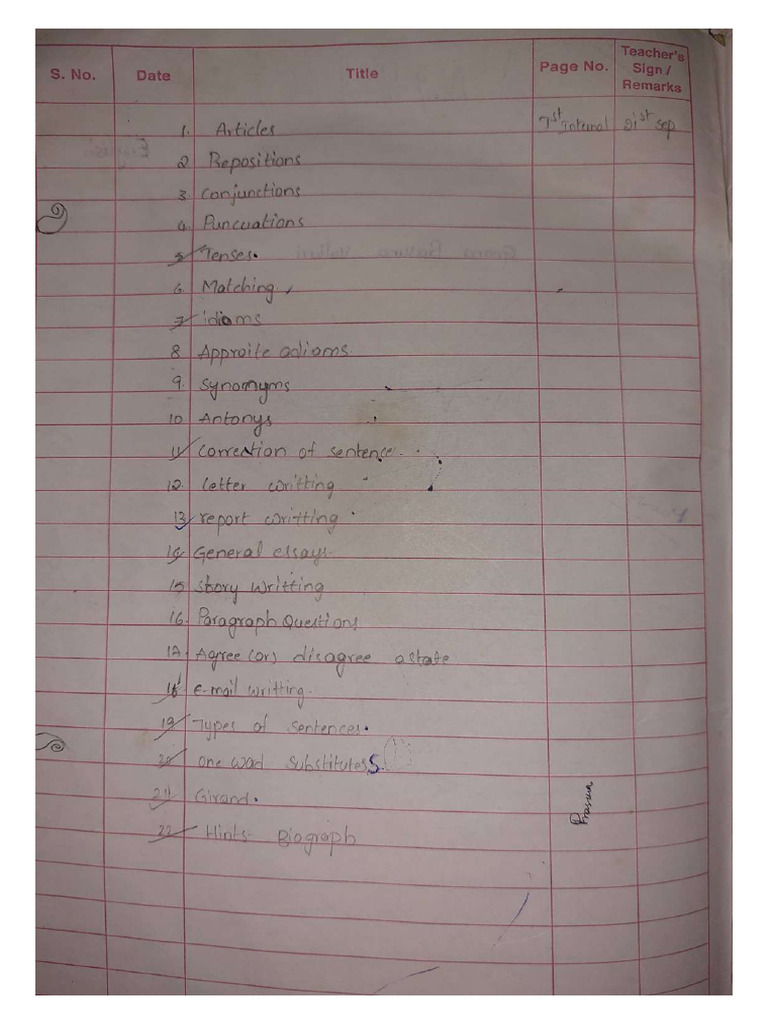 S. No. Date Title Page No. Teacher's Sign / Remarks
1. Articles 1st Internal 21st Sep
2 Prepositions
3. Conjunctions
4. Puncuations
5 Tenses.
6. Matching,
7 idioms
8 Approite adioms.
9. Synomyms
10 Antonys
11 Correction of sentence.
12. Letter writting
13 report writting
14 General essays.
15 Story writting
16. Paragraph Questions
17. Agree (or) disagree astate
18 E-mail writting.
19 Types of sentences.
20 One wad substitutes.
21 Girand.
22 Hints Biograph
Prasuna